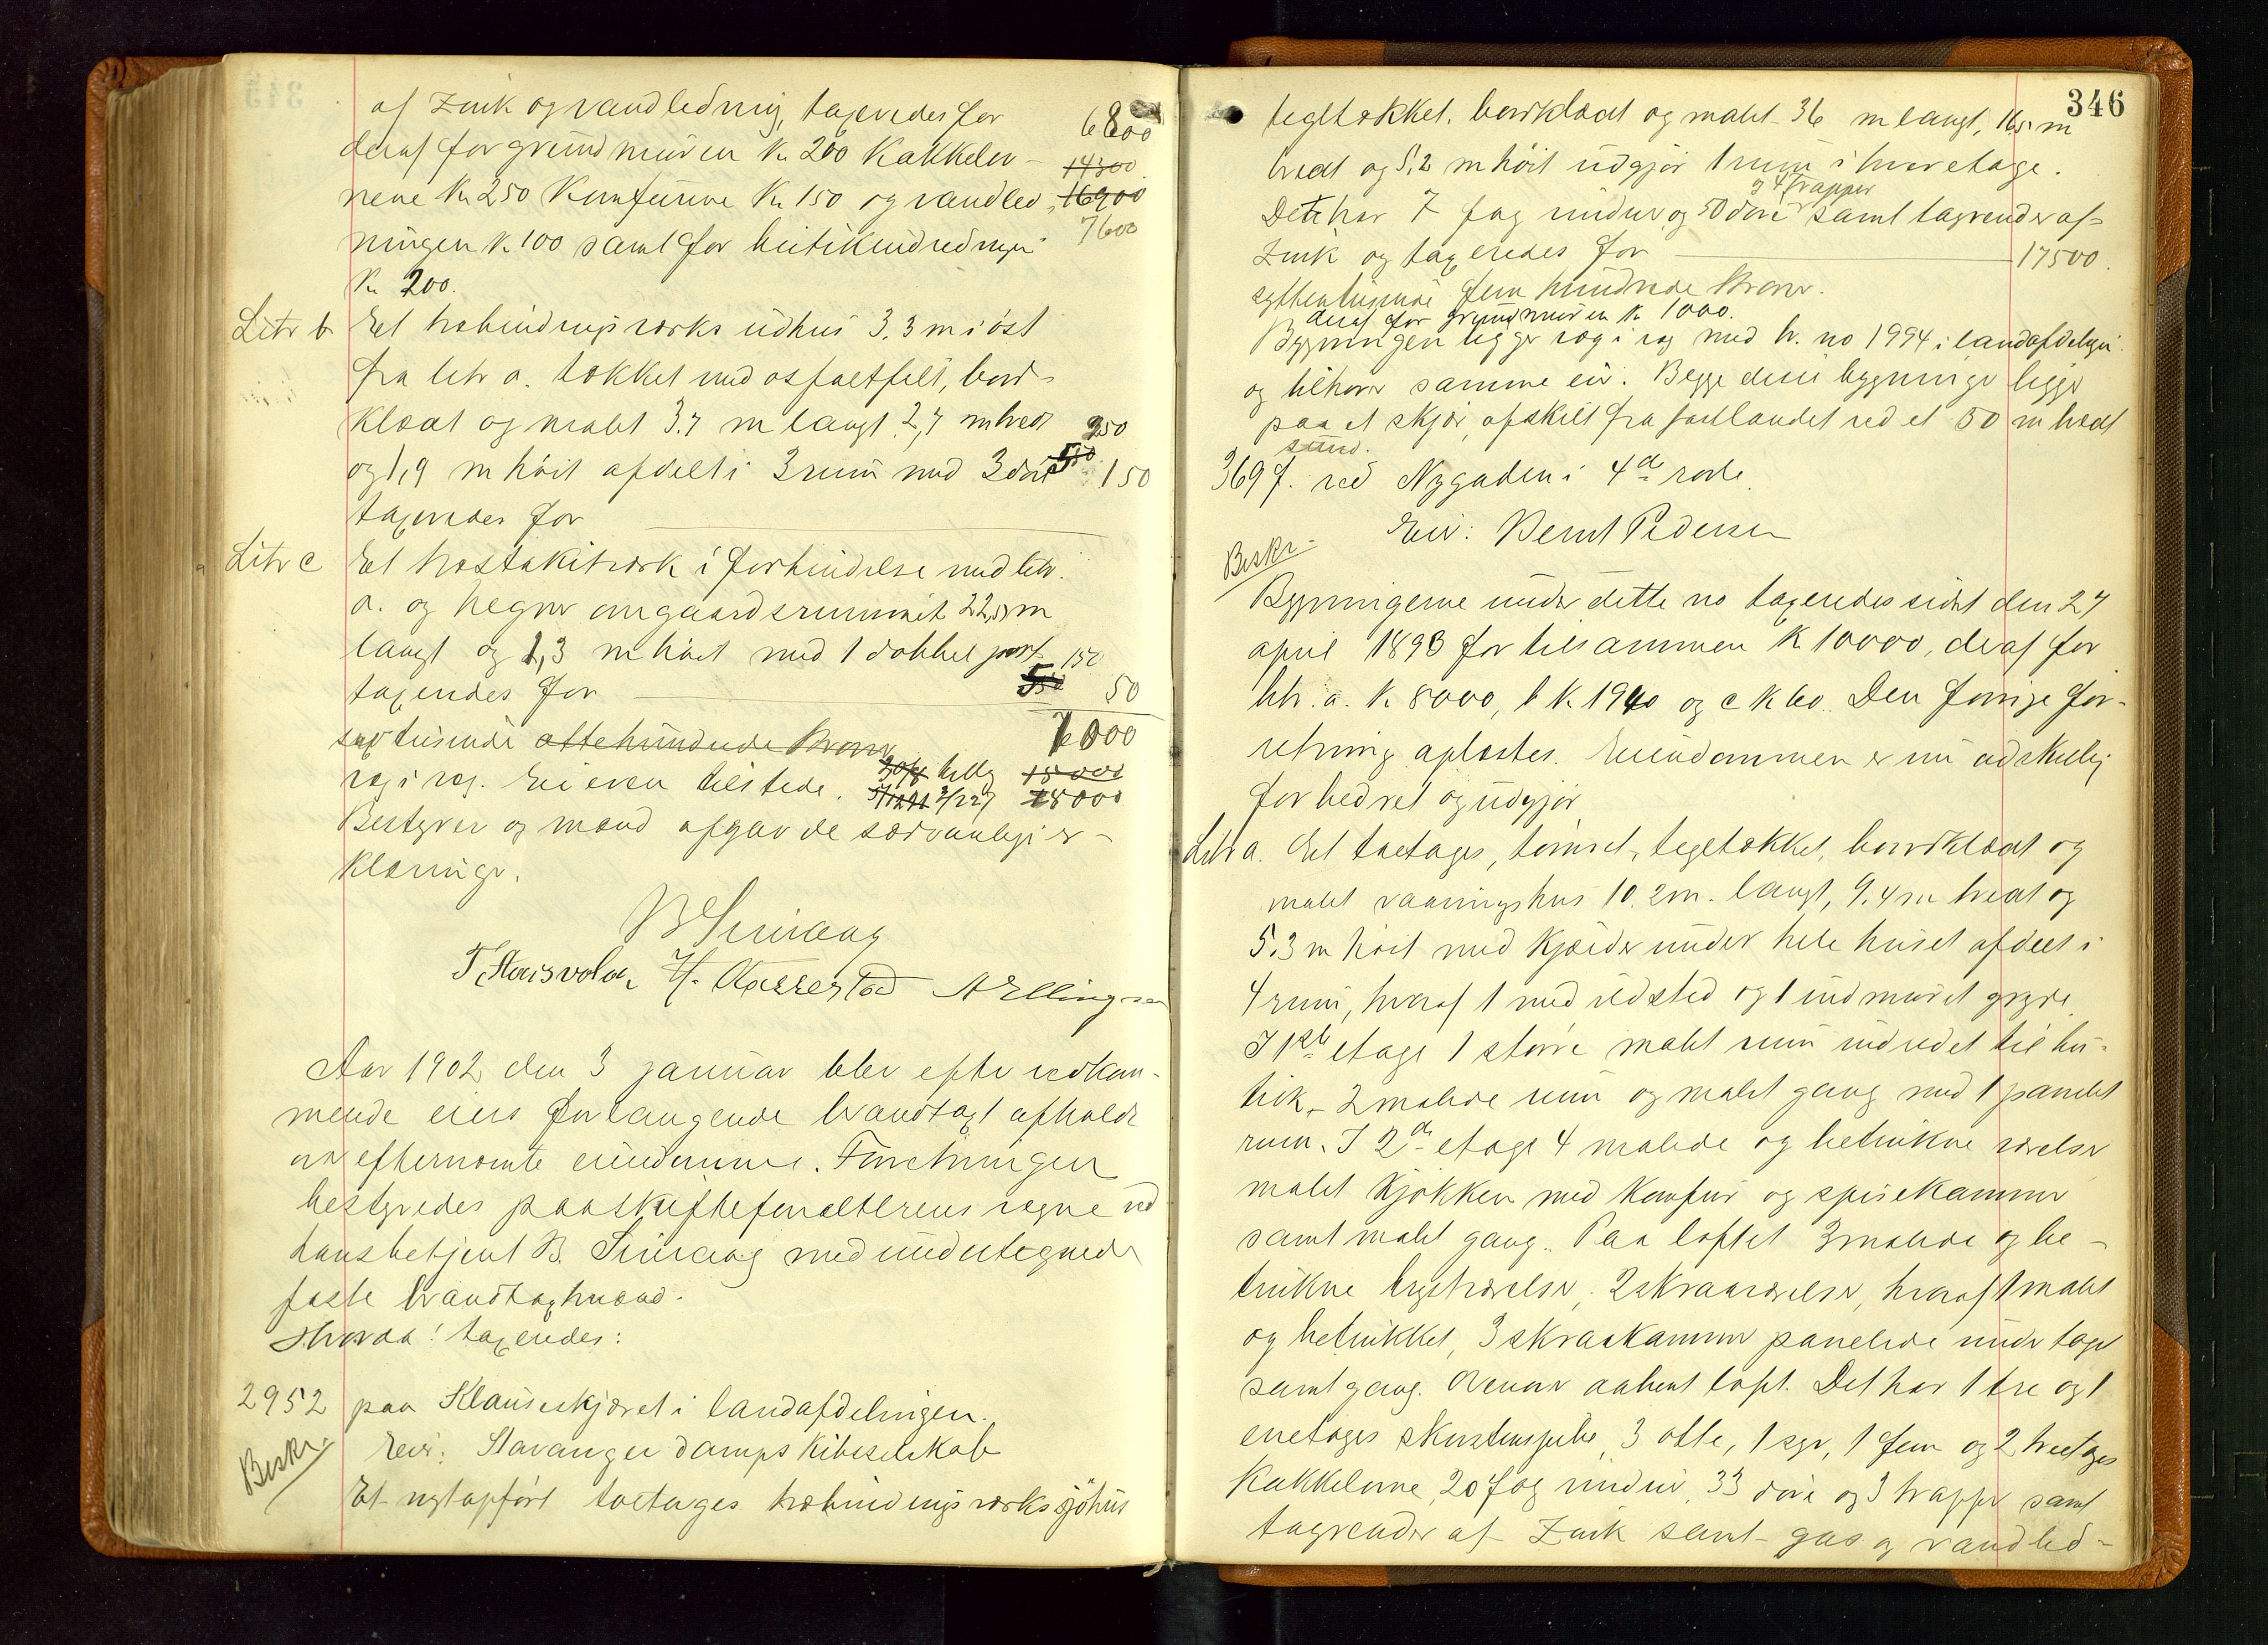 af Zink og vandledning, taxeredes for 6800
deraf for grundmuren Kr. 200 Kakkelov- 14300
nene Kr 250 Komfurene Kr 150 og vandled- 16900
ningen Kr. 100 samt for butikindredningen 7600
Kr 200.
Litr b Et træbindingsværks udhus 3,3 m i øst
fra litr a. tækket med asfaltfilt, bord-
klædt og malet 3.7 m langt 2,7 m bredt 250
og 1,9 m høit afdelt i 3 rum med 3 døre 550 150
taxeredes for
Litr c Et træstakitværk i forbindelse med litr.
a. og hegner om gaardsrummet 22,5 m
langt og 1,3 m høit med 1 dobbel port 150
taxeredes for 550 50
syv tusinde ottehundrede Kroner 7000
væg i væg. Eieren tilstede. 15000
18000
Bestyrer og mænd afgav de sædvanlige er-
klæringer.
B Svinæng
T. Stensvold H. Aarrestad A Ellingsen
Aar 1902 den 3 januar blev efter vedkom-
mende eiers forlangende brandtaxt afholdt
over efternævnte eiendomme. Forretningen
bestyredes paa skifteforvalterens vegne ved
lensbetjent B. Svinæng med undertegnede
faste brandtaxtmænd.
Hvorda! taxeredes:
2952 paa Klauseskjæret i landafdelingen.
Beskr. Eier: Stavanger Dampskibsselskab
Et nyt opført toetages træbindingsværks sjøhus
346
tegltækket, bordklædt og malet 36 m langt, 16,5 m
bredt og 5,2 m høit udgjør 1 rum i hver etage.
og 4 trapper
Det har 7 fag vinduer og 50 døre samt tagrender af
Zink og taxeredes for 17500.
sytten tusinde fem hundrede Kroner.
deraf for grundmuren Kr. 1000.
Bygningen ligger væg i væg med br. no 1994 i landafdelingen
og tilhører samme eier. Begge disse bygninger ligger
paa et skjær, afskilt fra fastlandet ved et 50 m bredt
sund.
369 f. ved Nygaden i 4de rode.
Eier: Bernt Pedersen
Beskr.
Bygningerne under dette no taxeredes sidst den 27
april 1893 for tilsammen K 10000, deraf for
litr. a. K. 8000, b K. 1940 og c K 60. Den forrige for-
retning oplæstes. Eiendommen er nu adskillig
forbedret og udgjør
Litr a. Et toetages, tømret, tegltækket, bordklædt og
malet vaaningshus 10.2 m. langt, 9.4 m bredt og
5.3 m høit med kjælder under hele huset afdelt i
4 rum, hvoraf 1 med ildsted og 1 indmuret gryde.
I 1ste etage 1 større malet rum indredet til bu-
tik, 2 malede rum og malet gang med 1 panelet
rum. I 2de etage 4 malede og betrukne værelser
malet kjøkken med Komfur og spisekammer
samt malet gang. Paa loftet 3 malede og be-
trukne kvistværelser, 2 skraaværelser, hvoraf 1 malet
og betrukket, 3 skraakammer panelede under taget
samt gang. Ovenover aabent loft. Det har 1 tre og 1
enetages skorstenspibe, 3 otte, 1 syv, 1 fem og 2 treetages
Kakkelovne, 20 fag vinduer, 33 døre og 3 trapper samt
tagrender af Zink samt gas og vandled-